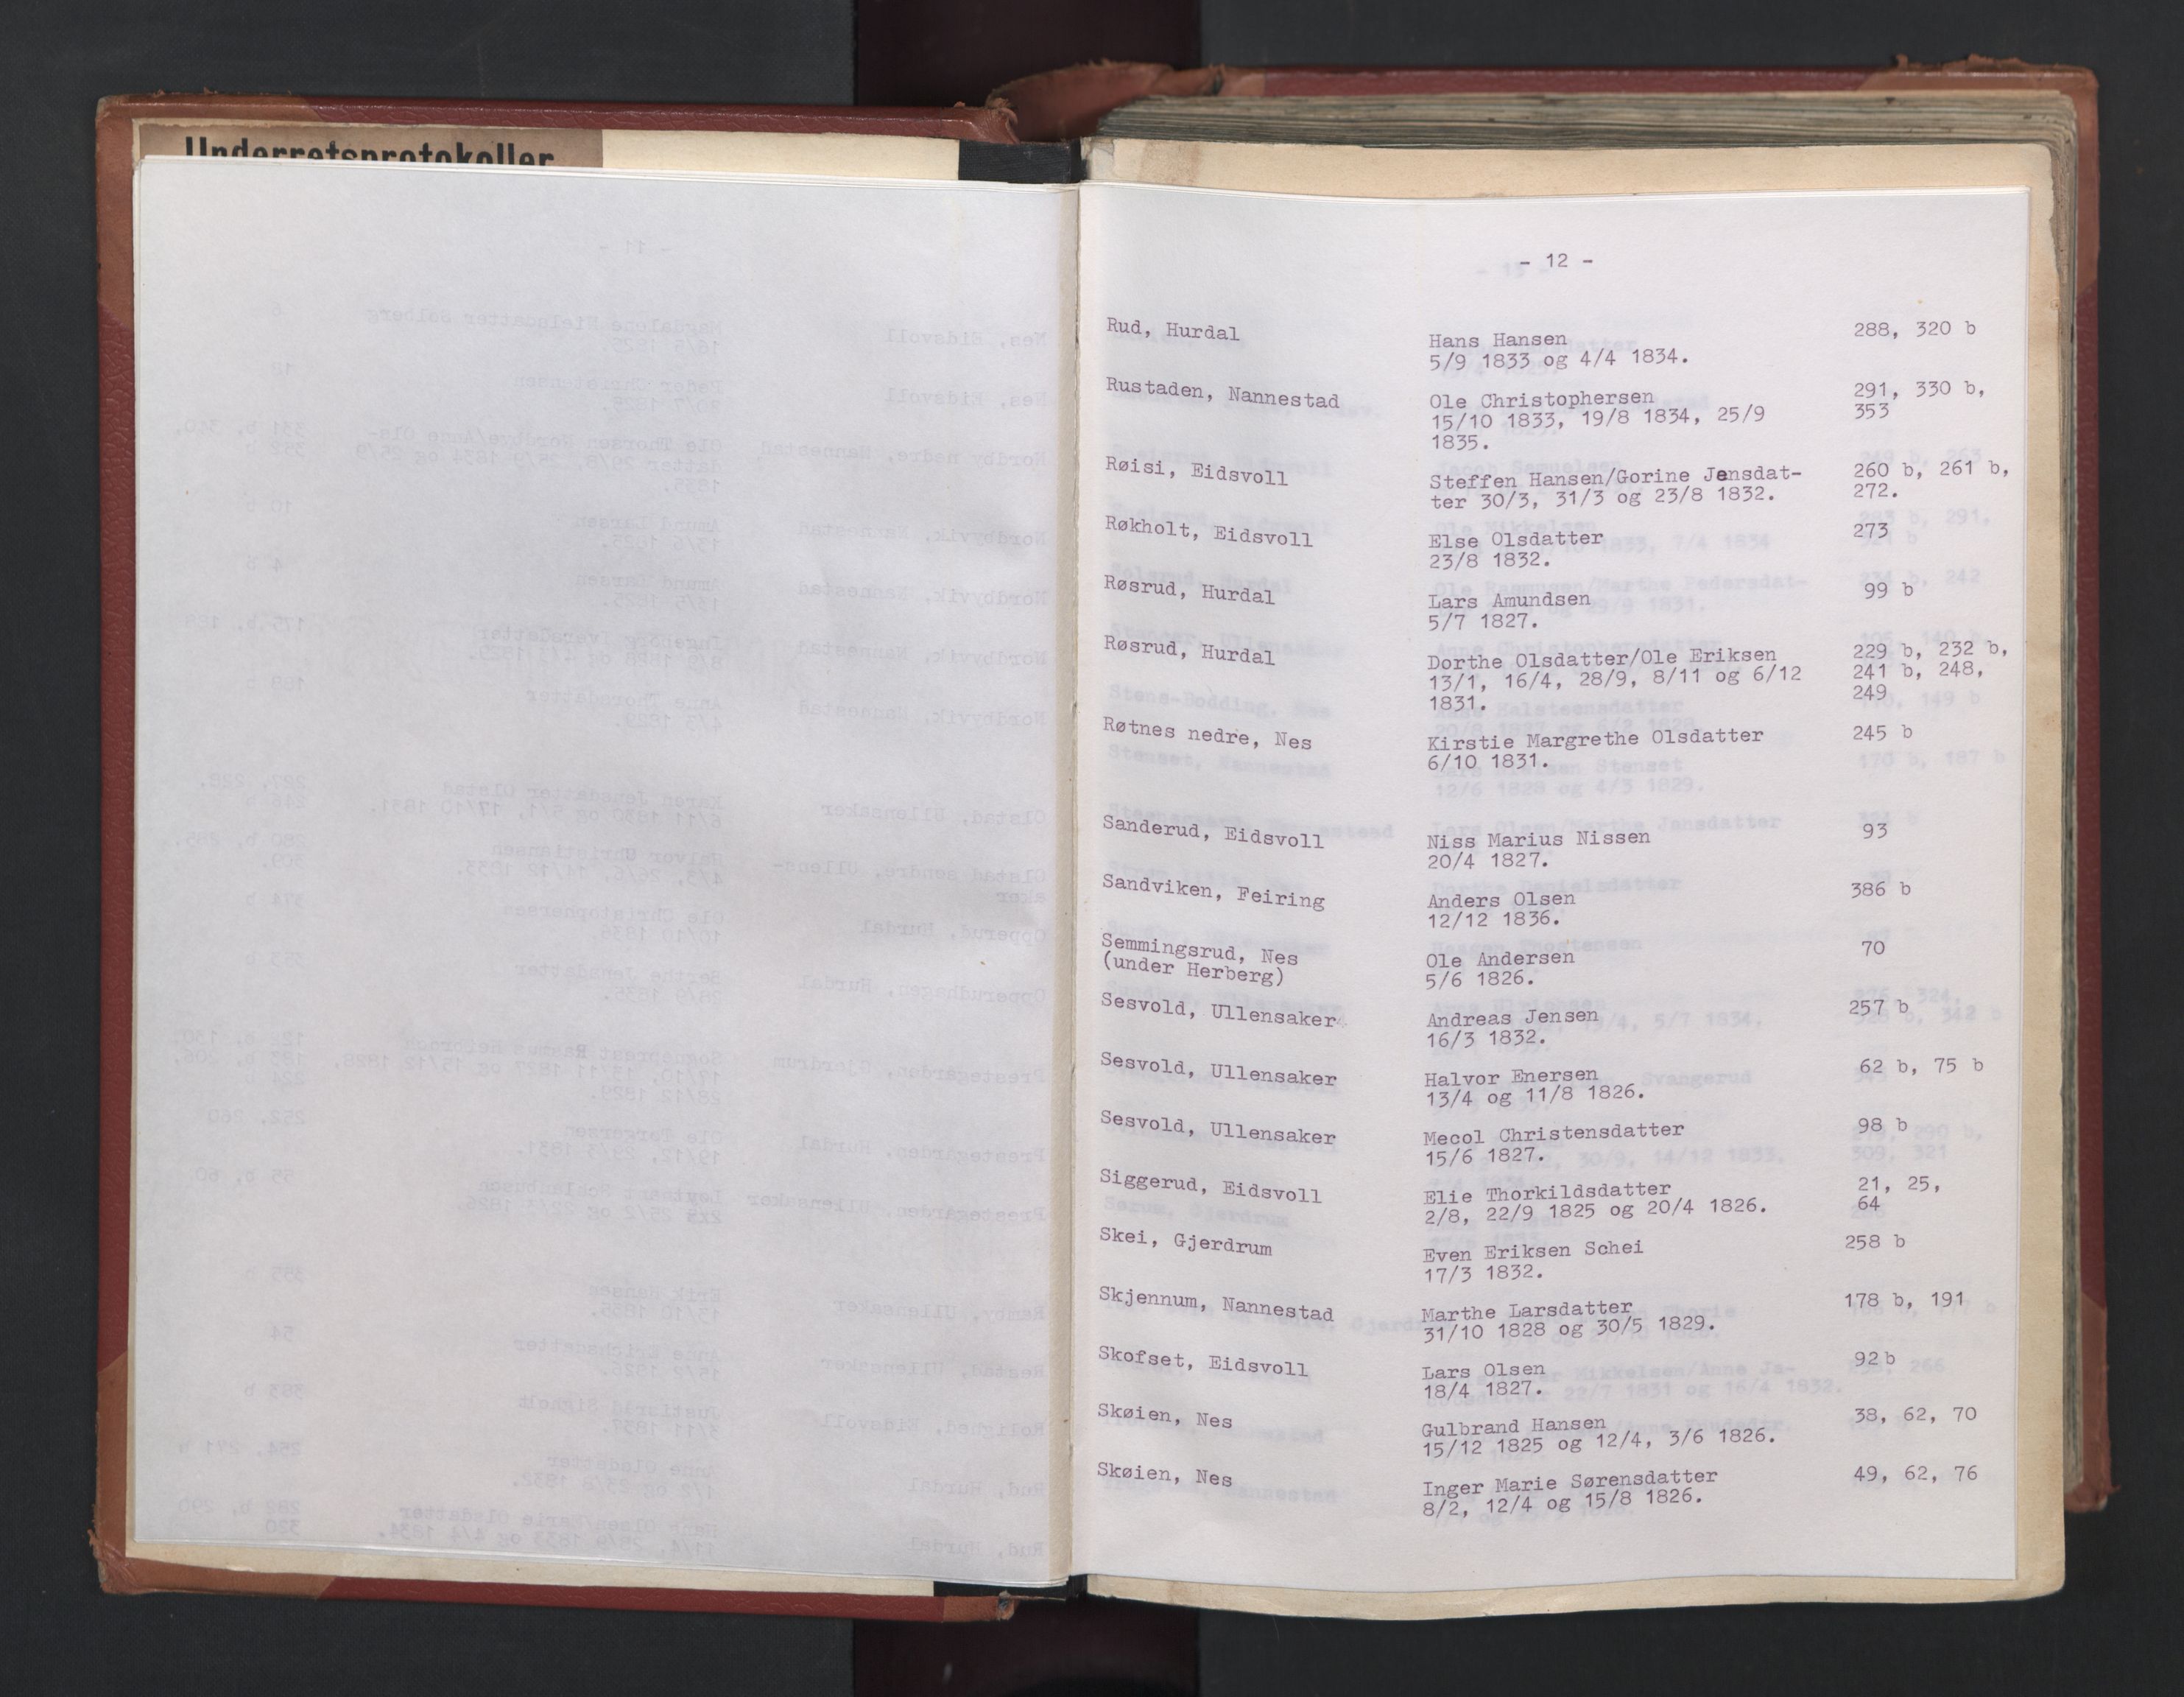 Underretsprotokoller
- 12 -
Rud, Hurdal Hans Hansen 288, 320 b
5/9 1833 og 4/4 1834.
Rustaden, Nannestad Ole Christophersen 291, 330 b,
15/10 1833, 19/8 1834, 25/9 353
1835.
Røisi, Eidsvoll Steffen Hansen/Gorine Jensdat- 260 b, 261 b,
ter 30/3, 31/3 og 23/8 1832. 272.
Røkholt, Eidsvoll Else Olsdatter 273
23/8 1832.
Røsrud, Hurdal Lars Amundsen 99 b
5/7 1827.
Røsrud, Hurdal Dorthe Olsdatter/Ole Eriksen 229 b, 232 b,
13/1, 16/4, 28/9, 8/11 og 6/12 241 b, 248,
1831. 249
Røtnes nedre, Nes Kirstie Margrethe Olsdatter 245 b
6/10 1831.
Sanderud, Eidsvoll Niss Marius Nissen 93
20/4 1827.
Sandviken, Feiring Anders Olsen 386 b
12/12 1836.
Semmingsrud, Nes Ole Andersen 70
(under Herberg) 5/6 1826.
Sesvold, Ullensaker Andreas Jensen 257 b
16/3 1832.
Sesvold, Ullensaker Halvor Enersen 62 b, 75 b
13/4 og 11/8 1826.
Sesvold, Ullensaker Mecol Christensdatter 98 b
15/6 1827.
Siggerud, Eidsvoll Elie Thorkildsdatter 21, 25,
2/8, 22/9 1825 og 20/4 1826. 64
Skei, Gjerdrum Even Eriksen Schei 258 b
17/3 1832.
Skjennum, Nannestad Marthe Larsdatter 178 b, 191
31/10 1828 og 30/5 1829.
Skofset, Eidsvoll Lars Olsen 92 b
18/4 1827.
Skøien, Nes Gulbrand Hansen 38, 62, 70
15/12 1825 og 12/4, 3/6 1826.
Skøien, Nes Inger Marie Sørensdatter 49, 62, 76
8/2, 12/4 og 15/8 1826.